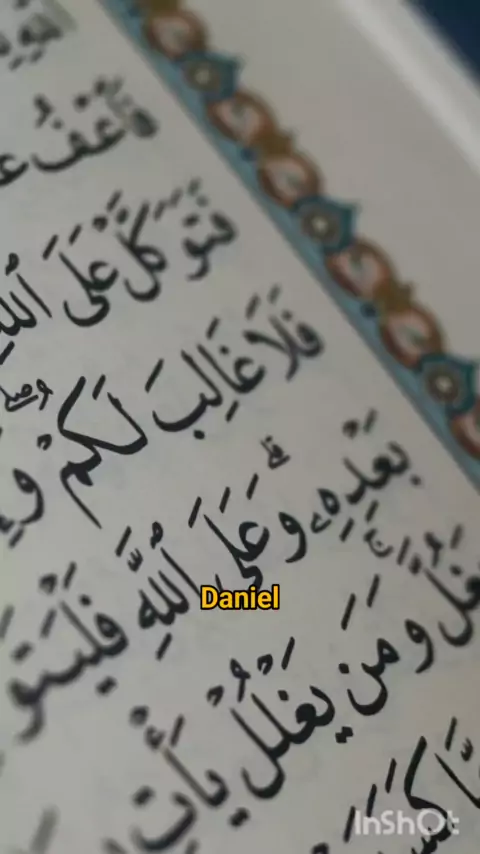 فَٱعۡفُ
فَتَوَكَّلۡ عَلَى ٱللَّهِ
فَلَا غَالِبَ لَكُمۡۖ
بَعۡدِهِۦۗ وَعَلَى ٱللَّهِ
يَغُلَّۚ وَمَن يَغۡلُلۡ يَأۡتِ
Daniel
InShOt